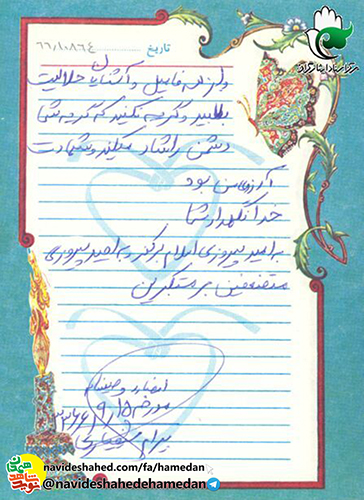 تاریخ ۶۶/۱۰۸۶۴
و از همه فامیل و آشنایان حلالیت
بطلبید و گریه نکنید که گریه شما
دشمن را شاد میکند و شهادت
آرزوی من بود
خدا نگهدار شما
به امید پیروزی اسلام بر کفر به امید پیروزی
مستضعفین بر مستکبرین
امضاء وصیتنامه
مورخه ۱۵/۹/۱۳۶۶
بهرام
navideshahed.com/fa/hamedan
@navideshahedehamedan